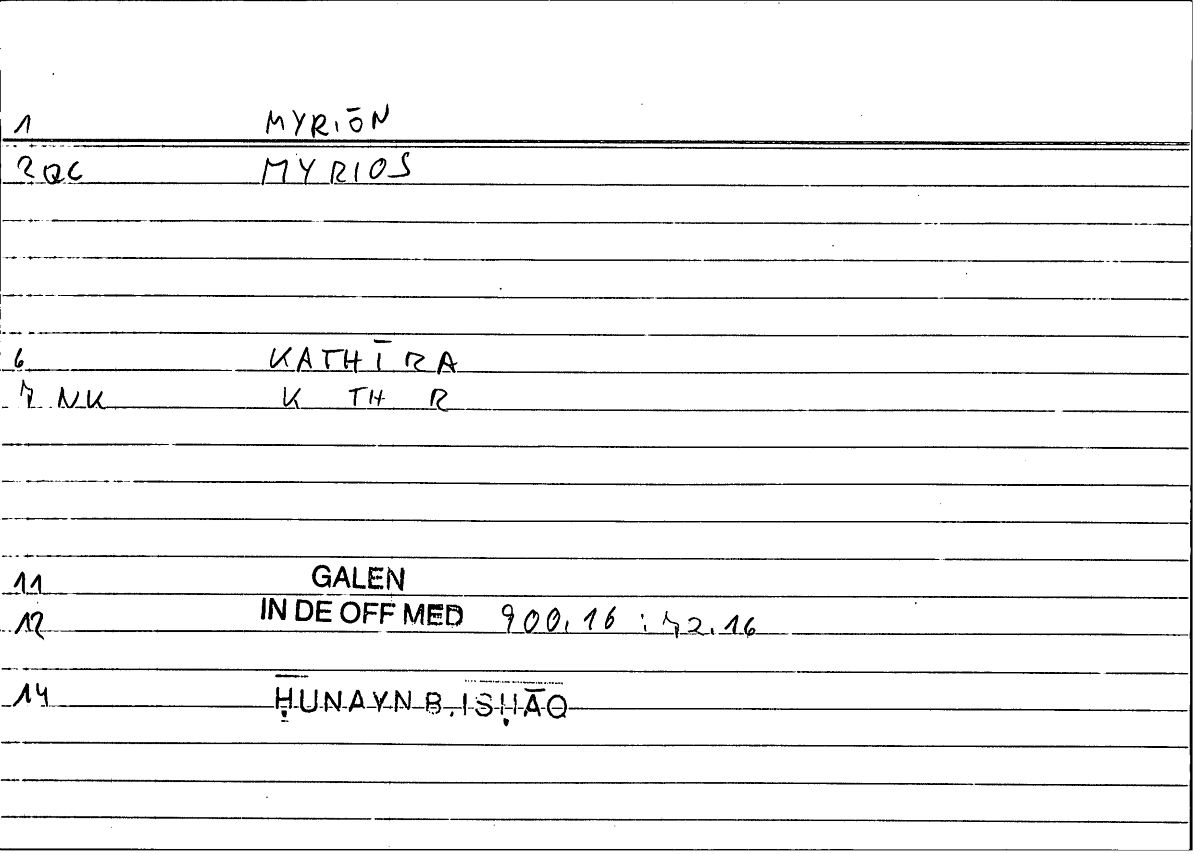 1 MYRIŌN
2 QC MYRIOS
6 KATHĪRA
7 NK K TH R
11 GALEN
12 IN DE OFF MED 900.16 : 72.16
14 ḤUNAYN B. ISḤĀQ